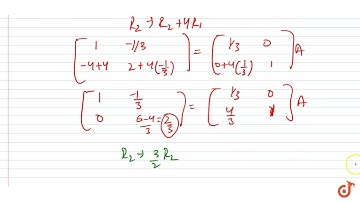 R₂ → R₂ + 4R₁
[1 -1/3; -4+4 2+4(-1/3)] = [1/3 0; 0+4(1/3) 1] A
[1 -1/3; 0 6-4/3 = 2/3] = [1/3 0; 4/3 1] A
R₂ → 3/2 R₂